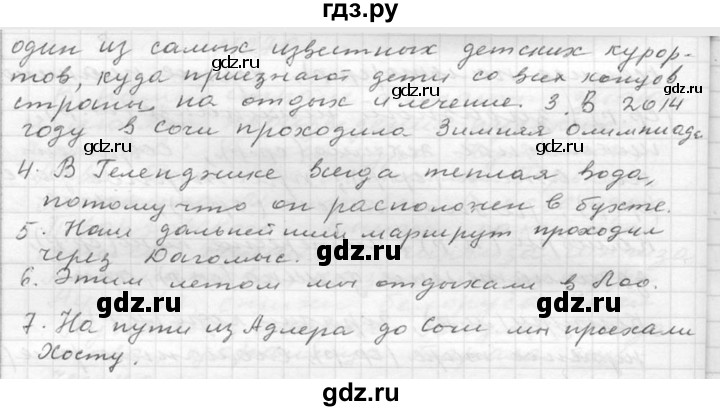 гдз.ру
один из самых известных детских курор-
тов, куда приезжают дети со всех концов
gdz.ru gdz.ru
страны на отдых и лечение. 3. В 2014
году в Сочи проходила Зимняя Олимпиада
gdz.ru gdz.ru
4. В Геленджике всегда теплая вода,
потому что он расположен в бухте.
gdz.ru
5. Наш дальнейший маршрут проходил
gdz.ru
через Дагомыс.
6. Этим летом мы отдыхали в Лоо.
gdz.ru gdz.ru
7. На пути из Адлера до Сочи мы проехали
Хосту.
gdz.ru
gdz.ru